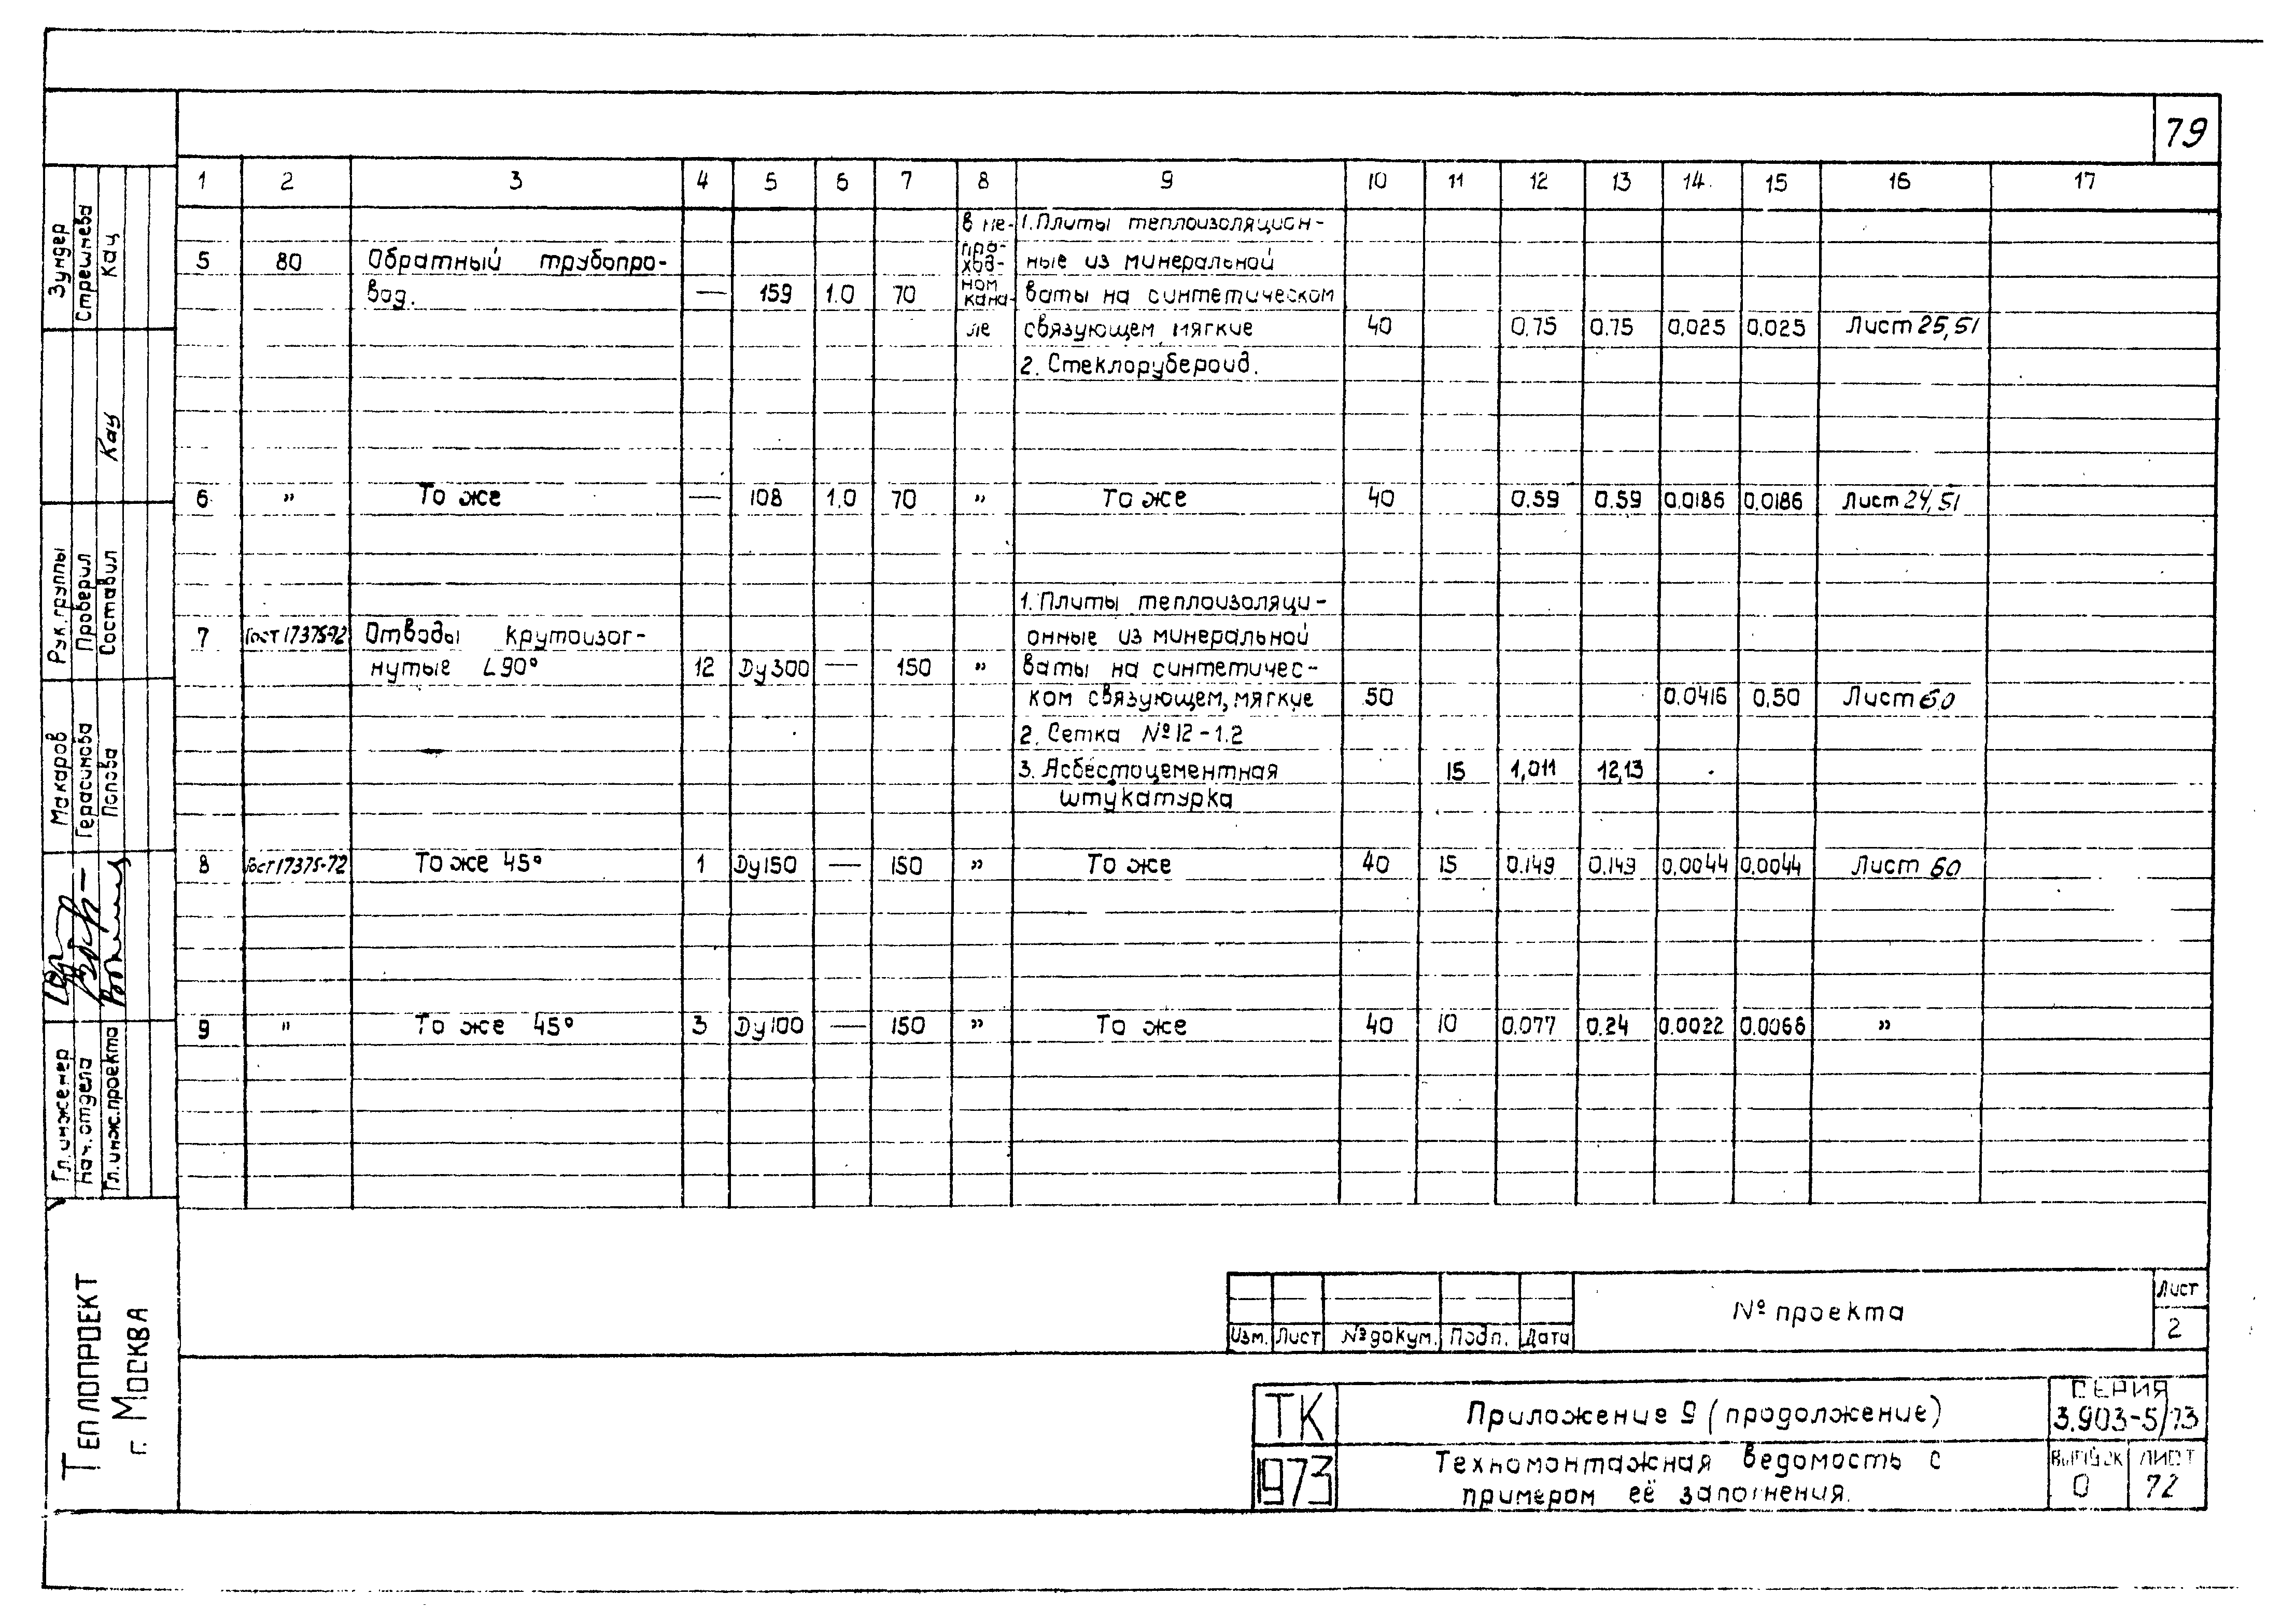 79
1 2 3 4 5 6 7 8 9 10 11 12 13 14. 15 16 17
в не- 1. Плиты теплоизоляцион-
5 80 Обратный трубопро- про- ход- ные из минеральной
вод. — 159 1.0 70 ном кана- ваты на синтетическом
ле связующем мягкие 40 0,75 0,75 0,025 0,025 Лист 25,51
2. Стеклорубероид.
6 " То же — 108 1,0 70 " То же 40 0,59 0,59 0,0186 0,0186 Лист 24,51
1. Плиты теплоизоляци-
7 Гост 17375-72 Отводы крутоизог- онные из минеральной
нутые L90° 12 Ду300 — 150 " ваты на синтетичес-
ком связующем, мягкие 50 0,0416 0,50 Лист 60
2. Сетка №12-1.2
3. Асбестоцементная 15 1,011 12,13
штукатурка
8 Гост 17375-72 То же 45° 1 Ду150 — 150 " То же 40 15 0.149 0.149 0,0044 0,0044 Лист 60
9 " То же 45° 3 Ду100 — 150 " То же 40 10 0.077 0.24 0.0022 0.0066 "
№ проекта
Лист
2
Изм. Лист № докум. Подп. Дата
ТК
1973
Приложение 9 (продолжение)
Техномонтажная ведомость с
примером её заполнения.
СЕРИЯ
3.903-5/73
ВЫПУСК ЛИСТ
0 72
Зундер
Стрешнева
Кац
Кац
Рук. группы
Проверил
Составил
Макаров
Герасимова
Попова
Гл. инженер
Нач. отдела
Гл. инж. проекта
ТЕПЛОПРОЕКТ
г. МОСКВА